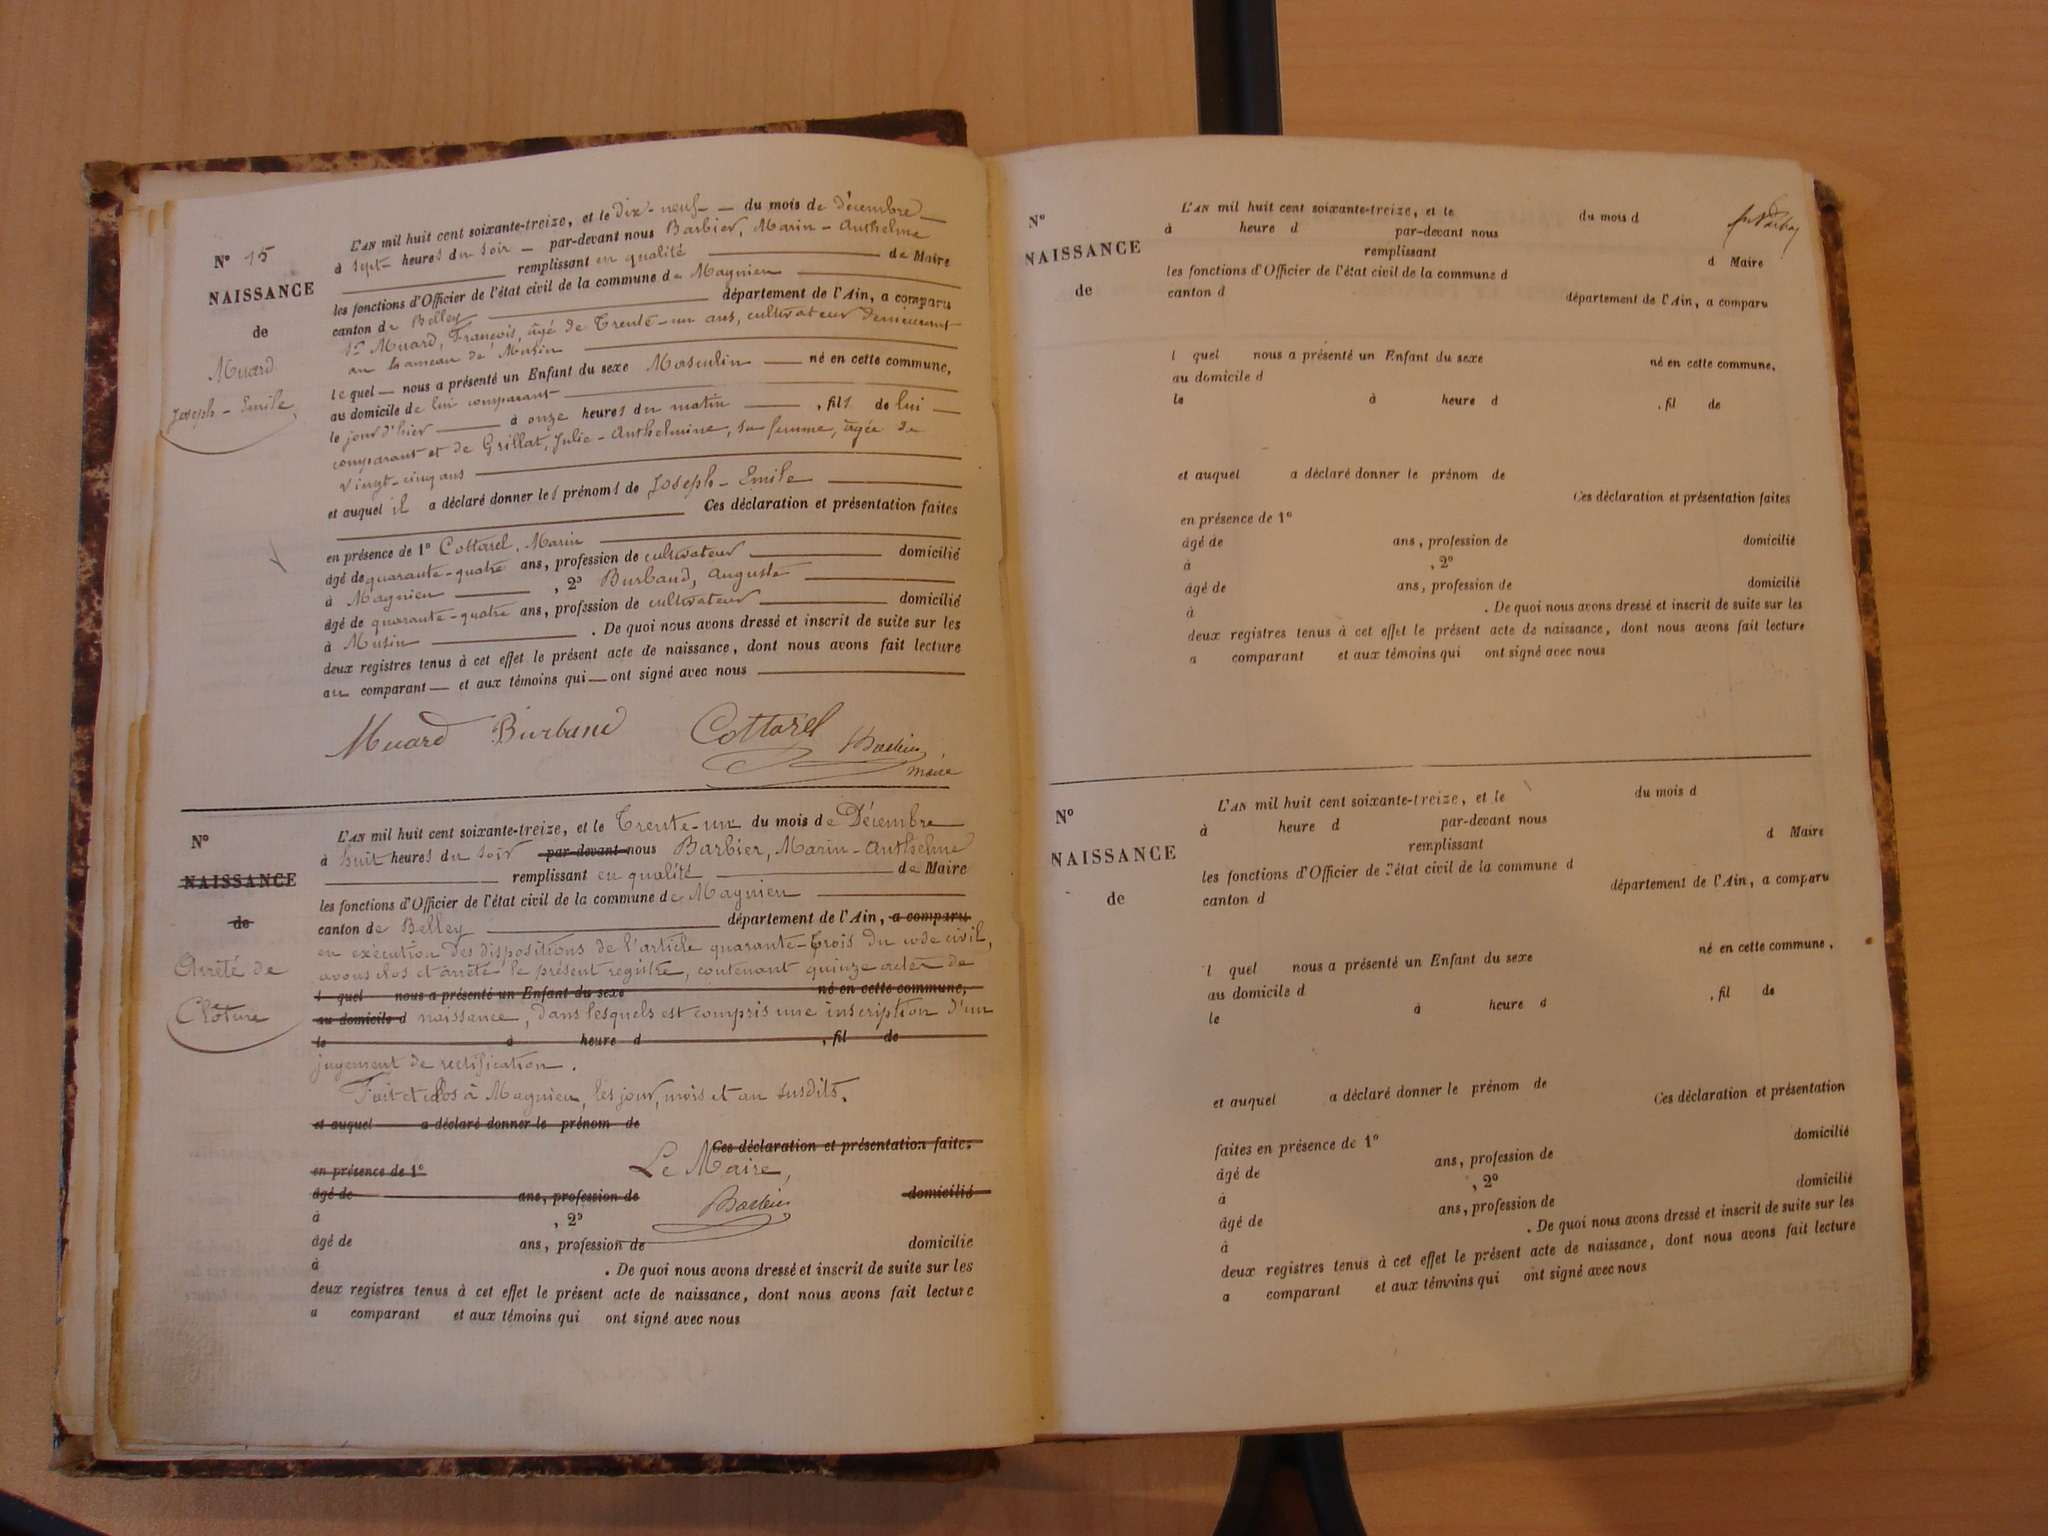 N° 15
NAISSANCE
de
Muard
Joseph-Emile
L'AN mil huit cent soixante-treize, et le dix-neuf — du mois de décembre —
à sept heures du soir — par-devant nous Barbier, Marin-Anthelme
remplissant en qualité de Maire
les fonctions d'Officier de l'état civil de la commune de Magnieu
canton de Belley département de l'Ain, a comparu
Sr Muard, François, âgé de Trente-un ans, cultivateur demeurant
au hameau de Musin
lequel — nous a présenté un Enfant du sexe Masculin — né en cette commune,
au domicile de lui comparant
le jour d'hier — à onze heures du matin — , fils de lui —
comparant et de Grillat, Julie-Anthelmine, sa femme, âgée de
vingt-cinq ans
et auquel il a déclaré donner les prénoms de Joseph-Emile
Ces déclaration et présentation faites
en présence de 1° Cottarel, Marin
âgé de quarante-quatre ans, profession de cultivateur domicilié
à Magnieu , 2° Burbaud, Auguste
âgé de quarante-quatre ans, profession de cultivateur domicilié
à Musin . De quoi nous avons dressé et inscrit de suite sur les
deux registres tenus à cet effet le présent acte de naissance, dont nous avons fait lecture
au comparant — et aux témoins qui — ont signé avec nous
Muard Burbaud Cottarel Barbier
maire
N°
NAISSANCE
de
Arrêté de
Clôture
L'AN mil huit cent soixante-treize, et le Trente-un du mois de Décembre
à huit heures du soir par-devant nous Barbier, Marin-Anthelme
remplissant en qualité de Maire
les fonctions d'Officier de l'état civil de la commune de Magnieu
canton de Belley département de l'Ain, a comparu
en exécution des dispositions de l'article quarante-trois du code civil,
avons clos et arrêté le présent registre, contenant quinze actes de
l quel nous a présenté un Enfant du sexe né en cette commune,
au domicile d naissance, dans lesquels est compris une inscription d'un
le à heure d , fil de
jugement de rectification.
Fait et clos à Magnieu, les jour, mois et an susdits.
et auquel a déclaré donner le prénom de
Ces déclaration et présentation faite.
en présence de 1° Le Maire,
âgé de ans, profession de domicilié
à , 2° Barbier
âgé de ans, profession de domicilié
à . De quoi nous avons dressé et inscrit de suite sur les
deux registres tenus à cet effet le présent acte de naissance, dont nous avons fait lecture
a comparant et aux témoins qui ont signé avec nous
N°
NAISSANCE
de
L'AN mil huit cent soixante-treize, et le du mois d
à heure d par-devant nous
remplissant d Maire
les fonctions d'Officier de l'état civil de la commune d
canton d département de l'Ain, a comparu
l quel nous a présenté un Enfant du sexe né en cette commune,
au domicile d
le à heure d , fil de
et auquel a déclaré donner le prénom de
Ces déclaration et présentation faites
en présence de 1°
âgé de ans, profession de domicilié
à , 2°
âgé de ans, profession de domicilié
à . De quoi nous avons dressé et inscrit de suite sur les
deux registres tenus à cet effet le présent acte de naissance, dont nous avons fait lecture
a comparant et aux témoins qui ont signé avec nous
N°
NAISSANCE
de
L'AN mil huit cent soixante-treize, et le du mois d
à heure d par-devant nous
remplissant d Maire
les fonctions d'Officier de l'état civil de la commune d
canton d département de l'Ain, a comparu
l quel nous a présenté un Enfant du sexe né en cette commune,
au domicile d
le à heure d , fil de
et auquel a déclaré donner le prénom de
Ces déclaration et présentation
faites en présence de 1° domicilié
âgé de ans, profession de
à , 2°
âgé de ans, profession de domicilié
à . De quoi nous avons dressé et inscrit de suite sur les
deux registres tenus à cet effet le présent acte de naissance, dont nous avons fait lecture
a comparant et aux témoins qui ont signé avec nous